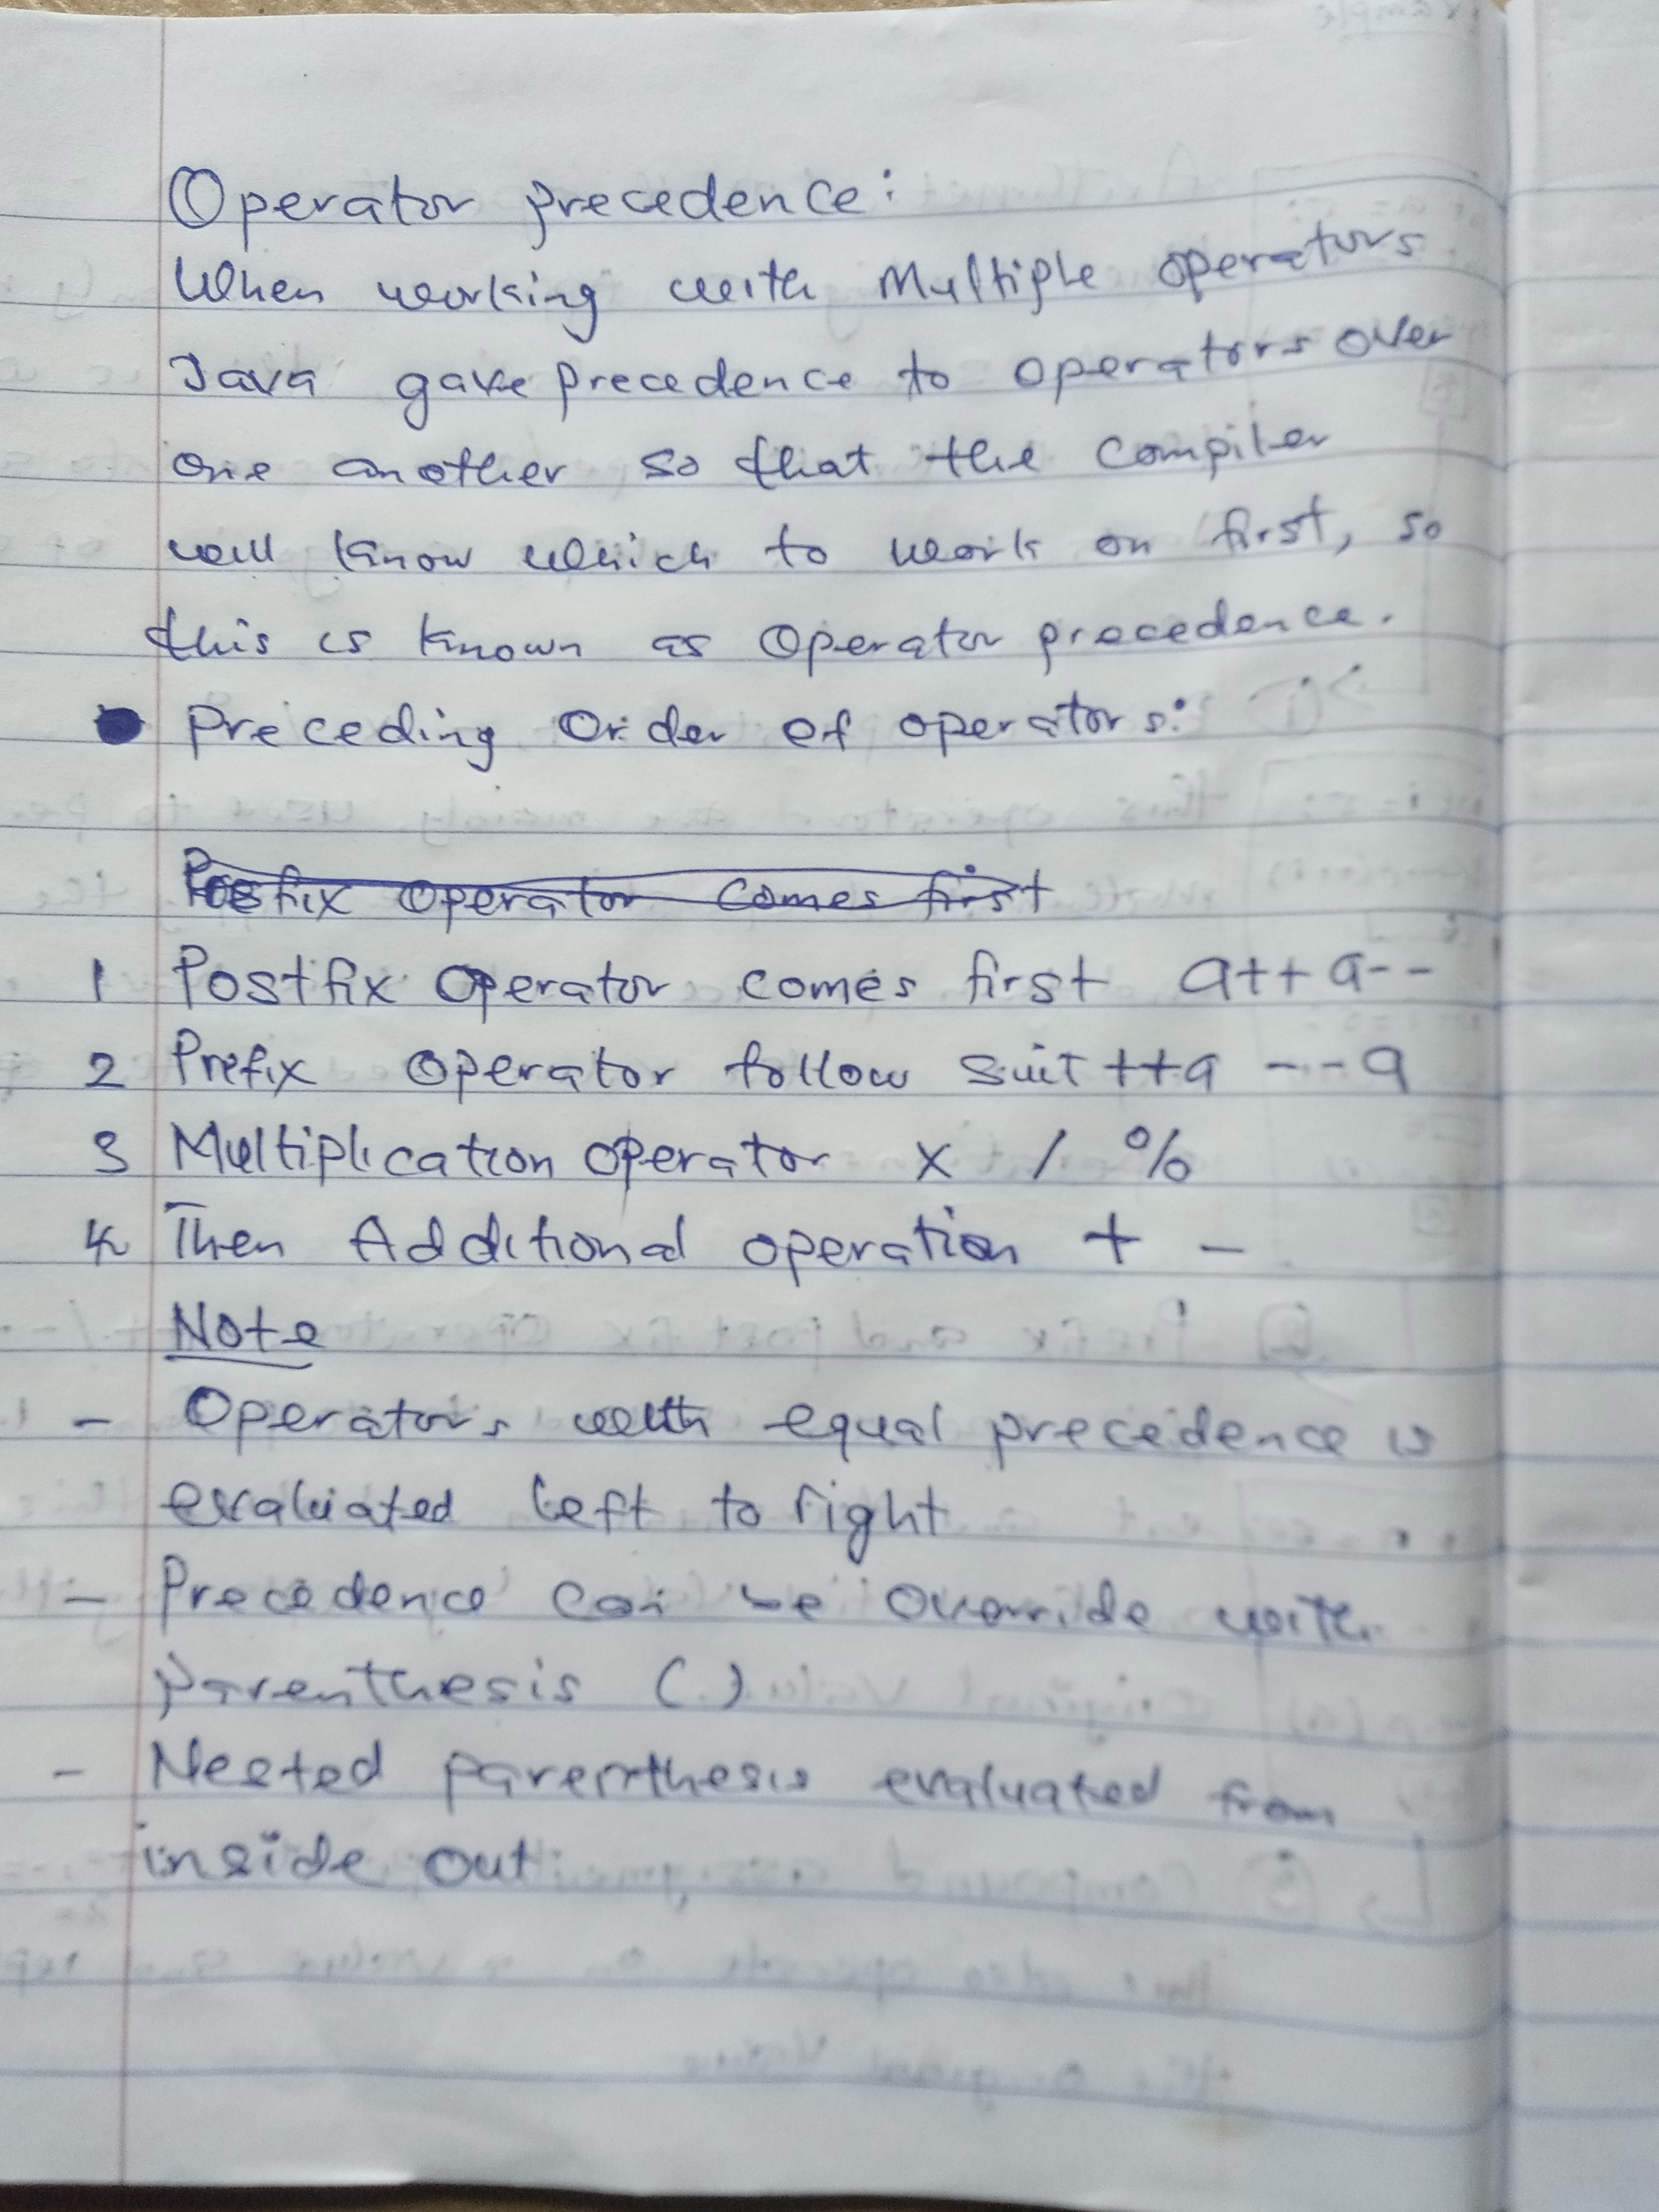 Operator precedence:
When working with Multiple operators
Java gave precedence to operators over
one another so that the compiler
will know which to work on first, so
this is known as Operator precedence.
Preceding Order of operators:
Postfix operator comes first a++ a--
1 Postfix operator comes first a++ a--
2 Prefix Operator follow suit ++a --a
3 Multiplication operator × / %
4 Then Additional operation + -
Note
- Operators with equal precedence is
evaluated left to right
- Precedence can be override with
parenthesis ( )
- Nested parenthesis evaluated from
inside out